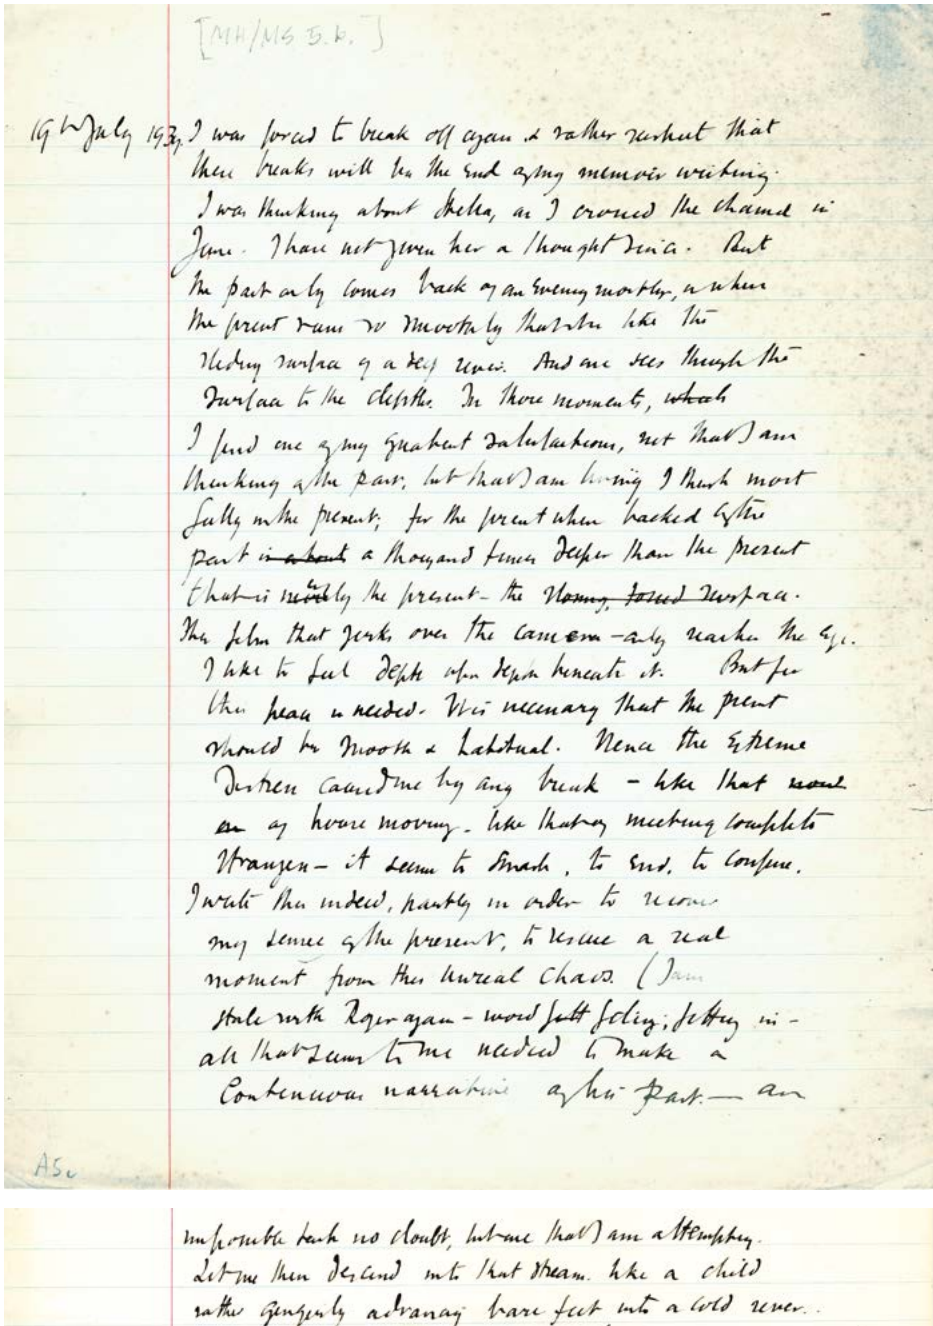 [MH/MS 5.b.]
19th July 1939. I was forced to break off again & rather suspect that
these breaks will be the end of my memoir writing.
I was thinking about Stella, as I crossed the channel in
June. I have not given her a thought since. But
the past only comes back of an evening mostly, or when
the present runs so smoothly that it is like the
sliding surface of a deep river. And one sees through the
surface to the depths. In those moments, which
I find one of my greatest satisfactions, not that I am
thinking of the past, but that I am living I think most
fully in the present; for the present when backed by the
past is about a thousand times deeper than the present
that is merely the present – the surface.
The film that jerks over the camera – only reaches the eye.
I like to feel depth upon depth beneath it. But for
this peace is needed. It is necessary that the present
should be smooth & habitual. Hence the extreme
distress caused me by any break – like that
of house moving. like that of meeting complete
strangers – it seems to smash, to end, to confuse.
I write this indeed, partly in order to recover
my sense of the present, to rescue a real
moment from this unreal chaos. (I am
stale with Roger again – word fitting in –
all that seems to me needed to make a
Continuous narrative of his past. — an
A5.
impossible task no doubt, but one that I am attempting.
Let me then descend into that stream. like a child
rather gingerly advancing bare feet into a cold river..